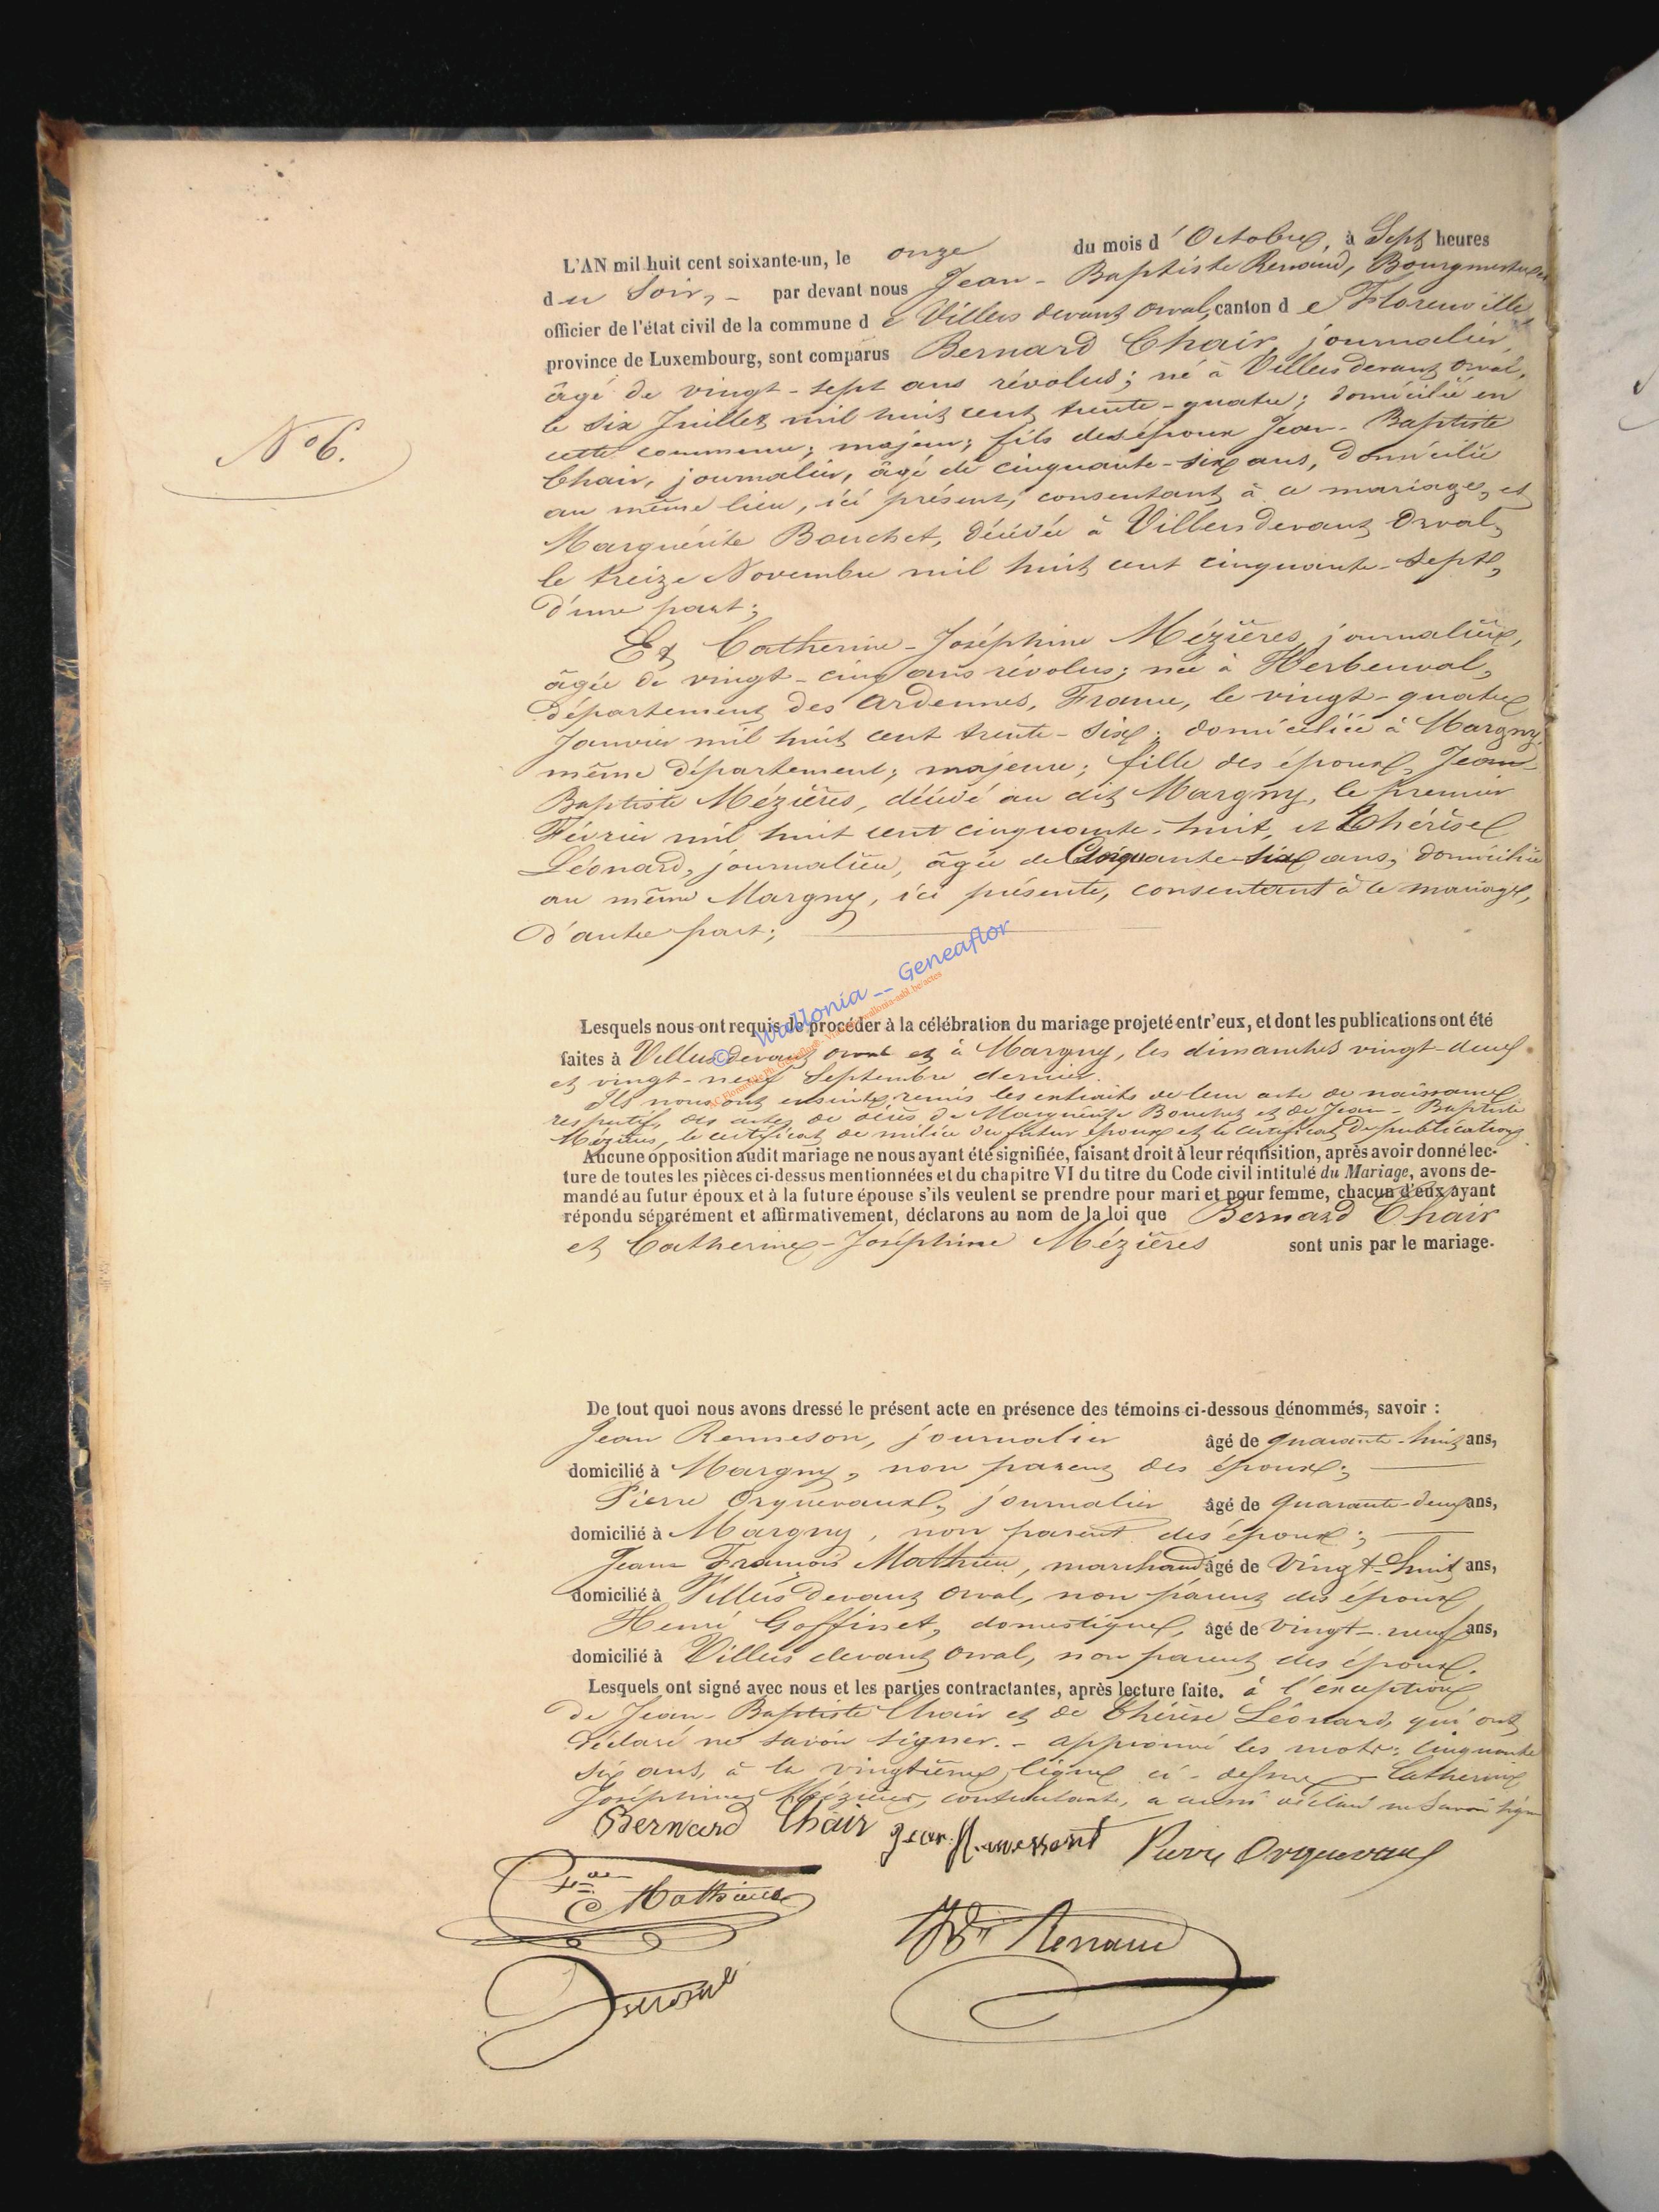 L'AN mil huit cent soixante-un, le onze du mois d'Octobre, à Sept heures
du Soir, - par devant nous Jean-Baptiste Renaud, Bourgmestre
officier de l'état civil de la commune de Villers devant Orval, canton de Florenville,
province de Luxembourg, sont comparus Bernard Chair, journalier,
âgé de vingt-sept ans révolus; né à Villers devant Orval,
le six Juillet mil huit cent trente-quatre; domicilié en
cette commune; majeur; fils des époux Jean-Baptiste
Chair, journalier, âgé de cinquante-six ans, domicilié
au même lieu, ici présent, consentant à ce mariage, et
Marguérite Bouchet, décédée à Villers devant Orval,
le treize Novembre mil huit cent cinquante-sept,
d'une part;
Et Catherine-Joséphine Mézières, journalière,
âgée de vingt-cinq ans révolus; née à Herbeuval,
département des Ardennes, France, le vingt-quatre
Janvier mil huit cent trente-six; domiciliée à Margny,
même département; majeure; fille des époux Jean-
Baptiste Mézières, décédé au dit Margny, le premier
Février mil huit cent cinquante-huit, et Thérèse
Léonard, journalière, âgée de Cinquante-six ans; domiciliée
au même Margny, ici présente, consentant à ce mariage,
d'autre part;
N° 6.
© Wallonia -- Geneaflor
Lesquels nous ont requis de procéder à la célébration du mariage projeté entr'eux, et dont les publications ont été
faites à Villers devant Orval et à Margny, les dimanches vingt-deux
et vingt-neuf Septembre dernier.
Ils nous ont ensuite remis les extraits de leur acte de naissance
respectif, des actes de décès de Marguérite Bouchet et de Jean-Baptiste
Mézières, le certificat de milice du futur époux et le certificat de publication
Aucune opposition audit mariage ne nous ayant été signifiée, faisant droit à leur réquisition, après avoir donné lec-
ture de toutes les pièces ci-dessus mentionnées et du chapitre VI du titre du Code civil intitulé du Mariage, avons de-
mandé au futur époux et à la future épouse s'ils veulent se prendre pour mari et pour femme, chacun d'eux ayant
répondu séparément et affirmativement, déclarons au nom de la loi que Bernard Chair
et Catherine-Joséphine Mézières sont unis par le mariage.
De tout quoi nous avons dressé le présent acte en présence des témoins ci-dessous dénommés, savoir :
Jean Renneson, journalier âgé de quarante-huit ans,
domicilié à Margny, non parent des époux;
Pierre Orquevaux, journalier âgé de quarante-deux ans,
domicilié à Margny, non parent des époux;
Jean François Mathieu, marchand âgé de Vingt-huit ans,
domicilié à Villers devant Orval, non parent des époux
Henri Goffinet, domestique, âgé de Vingt-neuf ans,
domicilié à Villers devant Orval, non parent des époux.
Lesquels ont signé avec nous et les parties contractantes, après lecture faite. à l'exception
de Jean-Baptiste Chair et de Thérèse Léonard, qui ont
déclaré ne savoir signer. - approuvé les mots: cinquante
six ans, à la vingtième ligne ci-dessus - Catherine
Joséphine Mézières, contractante, a aussi déclaré ne Savoir signer
Bernard Chair Jean Pierre Orquevaux
Mathieu
Renaud